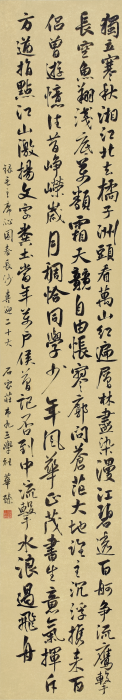 獨立寒秋湘江北去橘子洲頭看萬山紅遍層林盡染漫江碧透百舸争流鷹擊
長空魚翔淺底萬類霜天競自由悵寥廓問蒼茫大地誰主沉浮携来百
侣曾遊憶往昔崢嶸歲月稠恰同學少年風華正茂書生意氣揮斥
方遒指點江山激揚文字糞土當年萬户侯曾記否到中流擊水浪遏飛舟
録毛主席沁園春長沙喜迎二十大
石家莊市九三學社 華